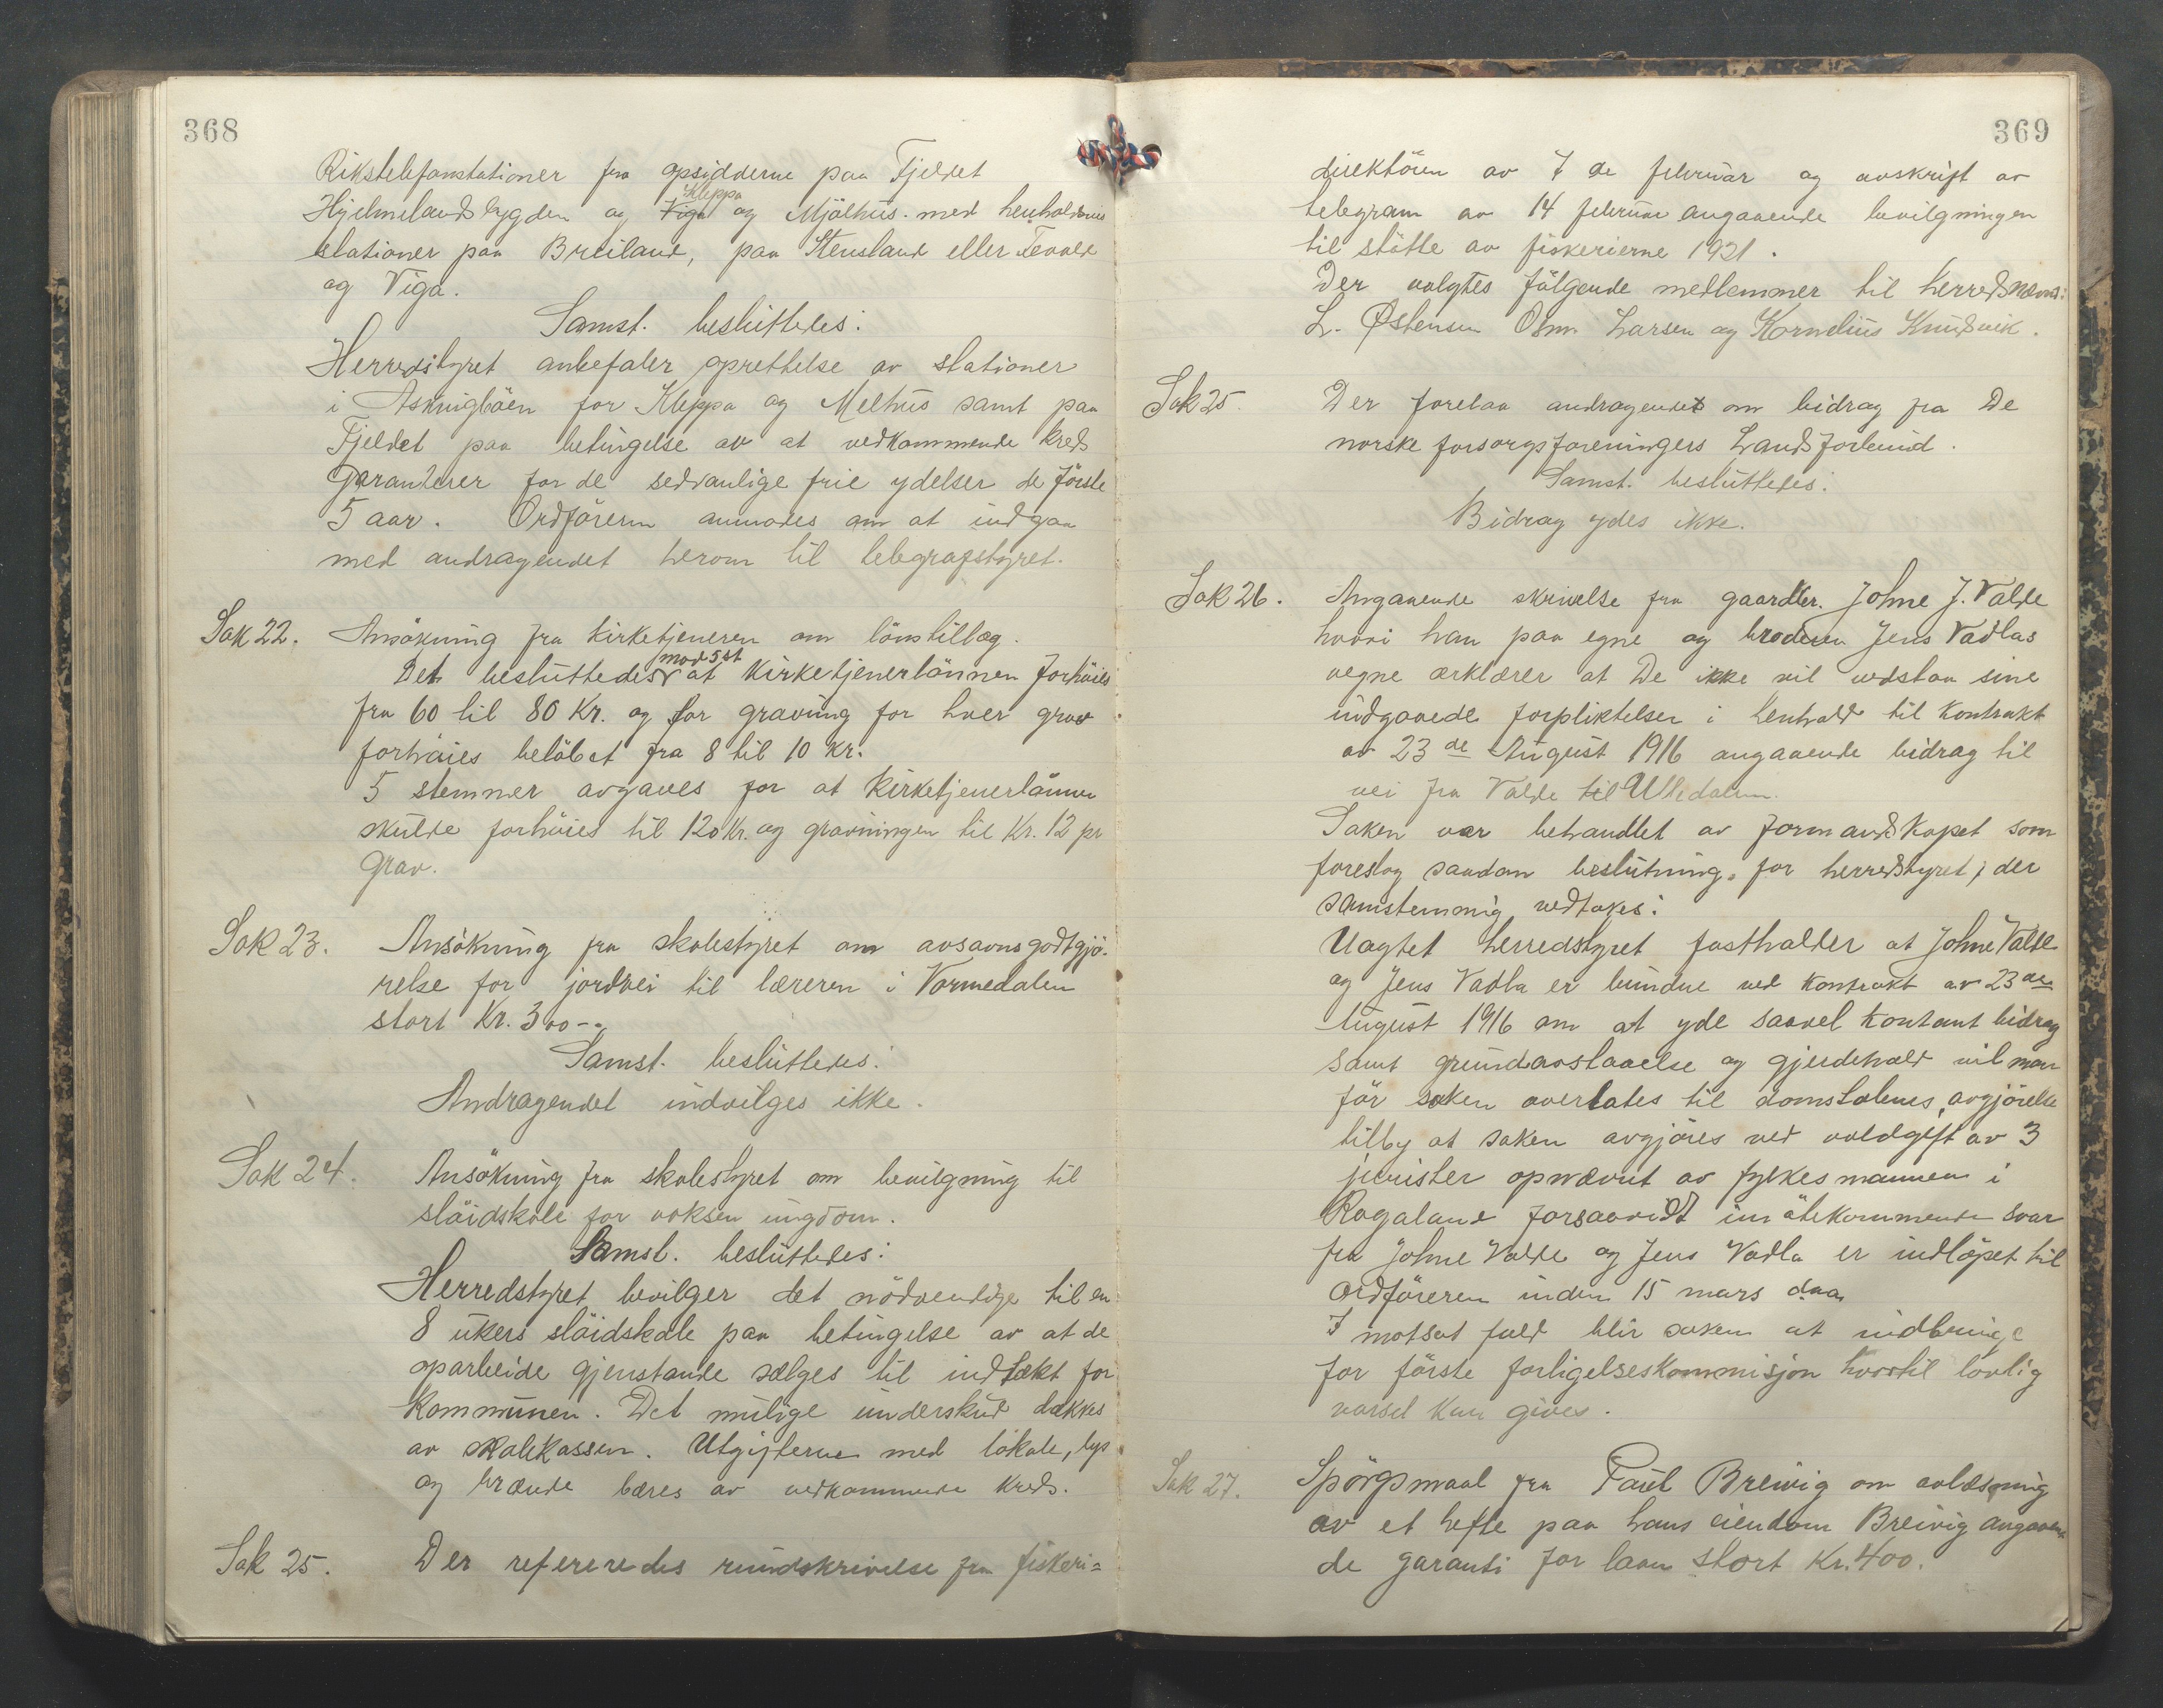 368
Rikstelefonstationer fra opsidderne paa Fjeldet
Hjelmelandsbygden og Kleppa og Mjölhus med henholdsvis
stationer paa Breiland, paa Stensland eller
og Viga.
Samst. besluttedes:
Herredstyret anbefaler oprettelse av stationer
i for Kleppa og Melhus samt paa
Fjeldet paa betingelse av at vedkommende kreds
garanterer for de sedvanlige frie ydelser de förste
5 aar. Ordföreren anmodes om at indgaa
med andragendet herom til telegrafstyret.
Sak 22. Ansökning fra kirketjeneren om lönstillæg.
Det besluttedes mod 5 st at kirketjenerlönnen forhöies
fra 60 til 80 Kr. og for graving for hver grav
forhöies belöbet fra 8 til 10 Kr.
5 stemmer avgaves for at kirketjenerlönnen
skulde forhöies til 120 Kr. og gravningen til Kr. 12 pr
grav.
Sak 23. Ansökning fra skolestyret om avsavnsgodtgjö-
relse for jordvei til læreren i Vormedalen
stort Kr. 300-.
Samst. besluttedes:
Andragendet indvilges ikke.
Sak 24. Ansökning fra skolestyret om bevilgning til
slöidskole for voksen ungdom.
Samst. besluttedes:
Herredstyret bevilger det nödvendige til en
8 ukers slöidskole paa betingelse av at de
oparbeide gjenstande sælges til indtækt for
Kommunen. Det mulige underskud dækkes
av skolekassen. Utgifterne med lokale, lys
og brænde bæres av vedkommende kreds.
Sak 25. Der refereredes rundskrivelse fra fiskeri=
369
direktören av 7 de februar og avskrift av
telegram av 14 februar angaaende bevilgningen
til stötte av fiskerierne 1921.
Der valgtes fölgende medlemmer til herredsnævnd:
L. Østensen Osm. Larsen og Kornelius Knudsvik.
Sak 25. Der forelaa andragendet om bidrag fra De
norske forsorgsforeningers Landsforbund.
Samst. besluttedes:
Bidrag ydes ikke.
Sak 26. Angaaende skrivelse fra gaardbr. Johne J. Valde
hvori han paa egne og broderen Jens Vadlas
vegne ærklærer at De ikke vil vedstaa sine
indgaaede forpliktelser i henhold til Kontrakt
av 23 de August 1916 angaaende bidrag til
vei fra Valde til Ulledalen.
Saken var behandlet av formandskapet som
foreslog saadan beslutning for herredstyret, der
samstemmig vedtokes:
Uagtet herredstyret fastholder at Johne Valde
og Jens Vadla er bundne ved Kontrakt av 23 de
August 1916 om at yde saavel kontant bidrag
samt grundavstaaelse og gjerdehold vil man
för saken overlates til domstolenes avgjörelse
tilby at saken avgjöres ved voldgift av 3
jurister opnævnt av fylkesmannen i
Rogaland forsaavidt imötekommende svar
fra Johne Valde og Jens Vadla er indlöpet til
ordföreren inden 15 mars d.aa.
I motsat fald blir saken at indbringe
for förste forligelseskommisjon hvortil lovlig
varsel kan gives.
Sak 27. Spörgsmaal fra Paul Breivig om avlösning
av et hefte paa hans eiendom Breivig angaaen
de garanti for laan stort Kr. 400.